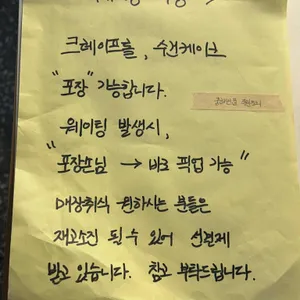 크레이프롤, 수건케이크
"포장" 가능합니다.
웨이팅 발생시,
"포장손님 → 바로 픽업 가능"
매장취식 원하시는 분들은
재고소진 될 수 있어 선결제
받고 있습니다. 참고 부탁드립니다.